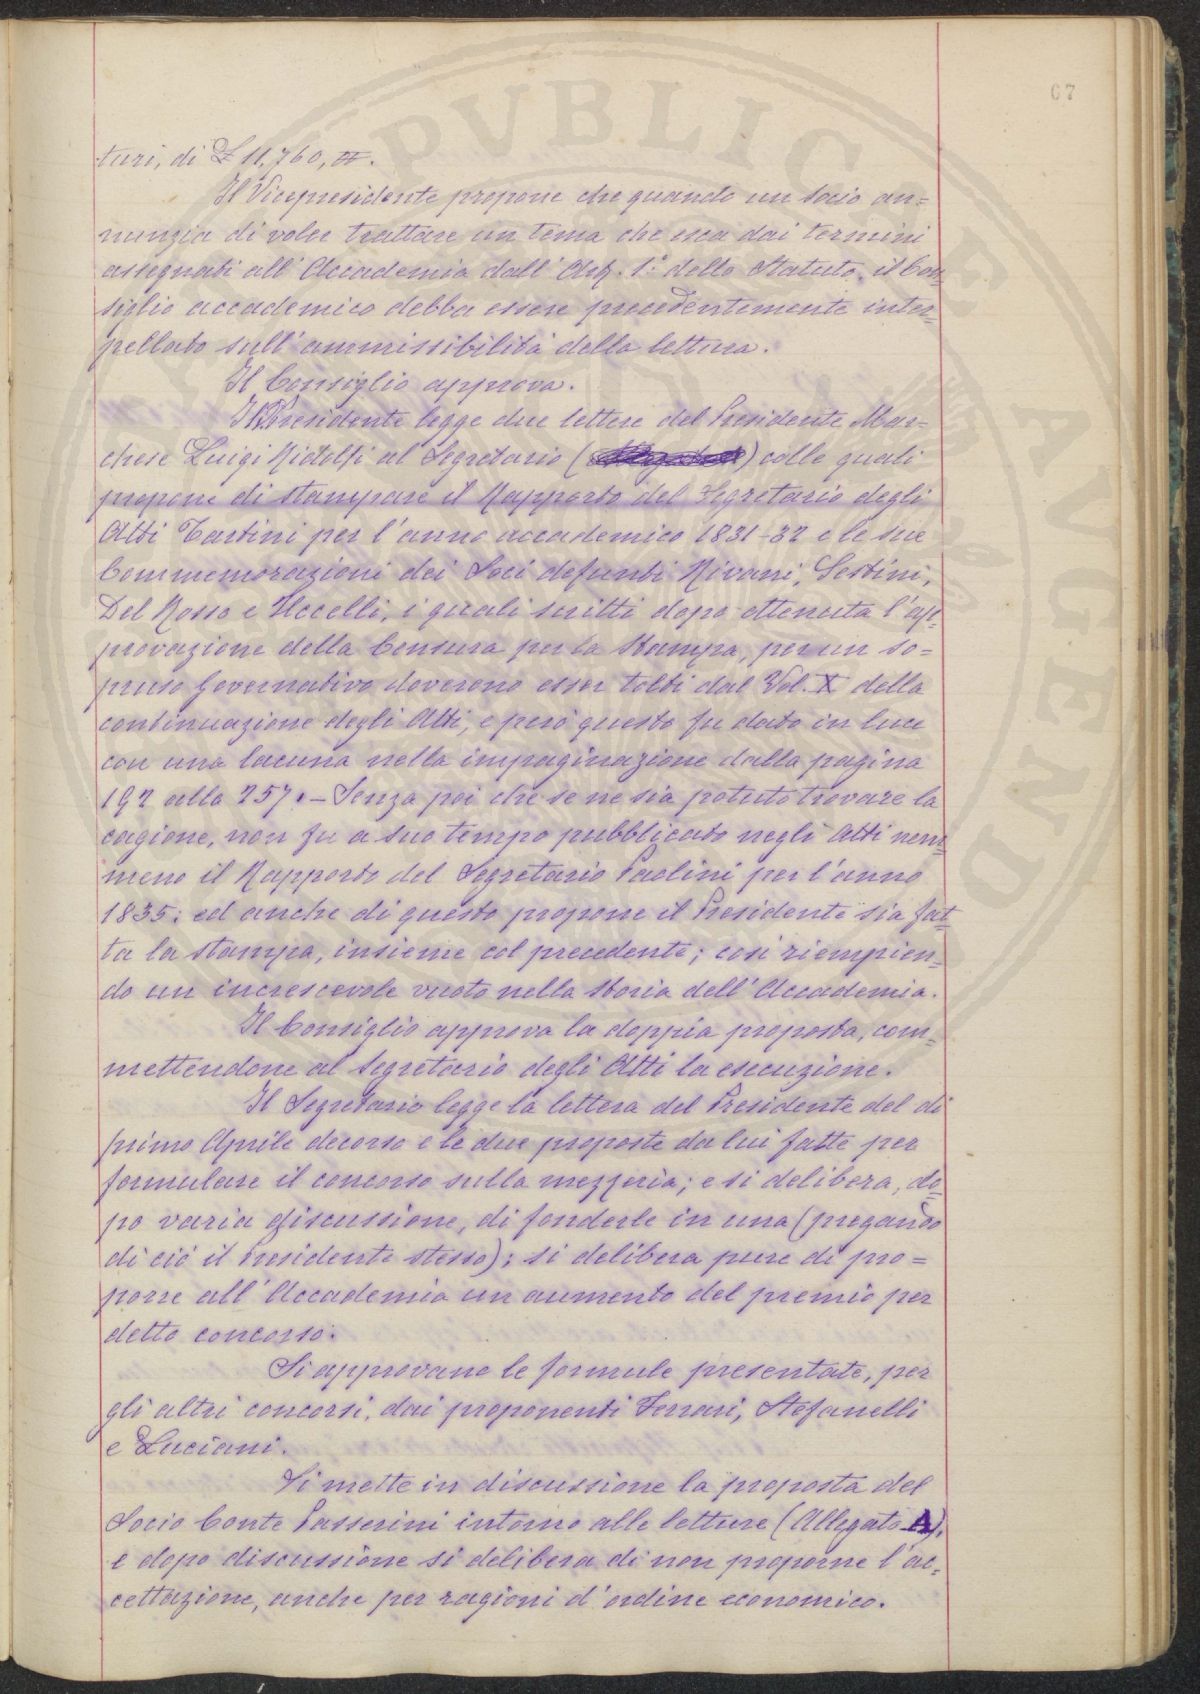 67
turi, di £ 11,760, tt.
Il Vicepresidente propone che quando un socio an=
nunzia di voler trattare un tema che esca dai termini
assegnati all' Accademia dall' Art. 1.° dello Statuto, il Con-
siglio accademico debba essere precedentemente inter-
pellato sull' ammissibilità della lettura.
Il Consiglio approva.
Il Presidente legge due lettere del Presidente Mar=
chese Luigi Ridolfi al Segretario ( ) colle quali
propone di stampare il Rapporto del Segretario degli
Atti Tartini per l'anno accademico 1831-32 e le sue
Commemorazioni dei Soci defunti Rivani, Sestini,
Del Rosso e Uccelli, i quali scritti dopo ottenuta l'ap-
provazione della Censura per la Stampa, per un so=
pruso Governativo doverono esser tolti dal Vol. X della
continuazione degli Atti, e però questo fu dato in luce
con una lacuna nella impaginazione dalla pagina
192 alla 257. — Senza poi che se ne sia potuto trovare la
cagione, non fu a suo tempo pubblicato negli Atti nem-
meno il Rapporto del Segretario Paolini per l'anno
1835; ed anche di questo propone il Presidente sia fat-
ta la stampa, insieme col precedente; così riempien-
do un increscevole vuoto nella storia dell' Accademia.
Il Consiglio approva la doppia proposta, com-
mettendone al Segretario degli Atti la esecuzione.
Il Segretario legge la lettera del Presidente del dì
primo Aprile decorso e le due proposte da lui fatte per
formulare il concorso sulla mezzeria; e si delibera, do-
po varia discussione, di fonderle in una (pregando
di ciò il Presidente stesso); si delibera pure di pro=
porre all' Accademia un aumento del premio per
detto concorso.
Si approvano le formule presentate, per
gli altri concorsi, dai proponenti Ferrari, Stefanelli
e Luciani.
Si mette in discussione la proposta del
Socio Conte Passerini intorno alle letture (Allegato A),
e dopo discussione si delibera di non proporne l'ac-
cettazione, anche per ragioni d'ordine economico.
PVBLICAE
AVGENDAE